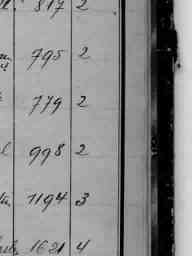 817 2
795 2
779 2
998 2
1194 3
1621 4